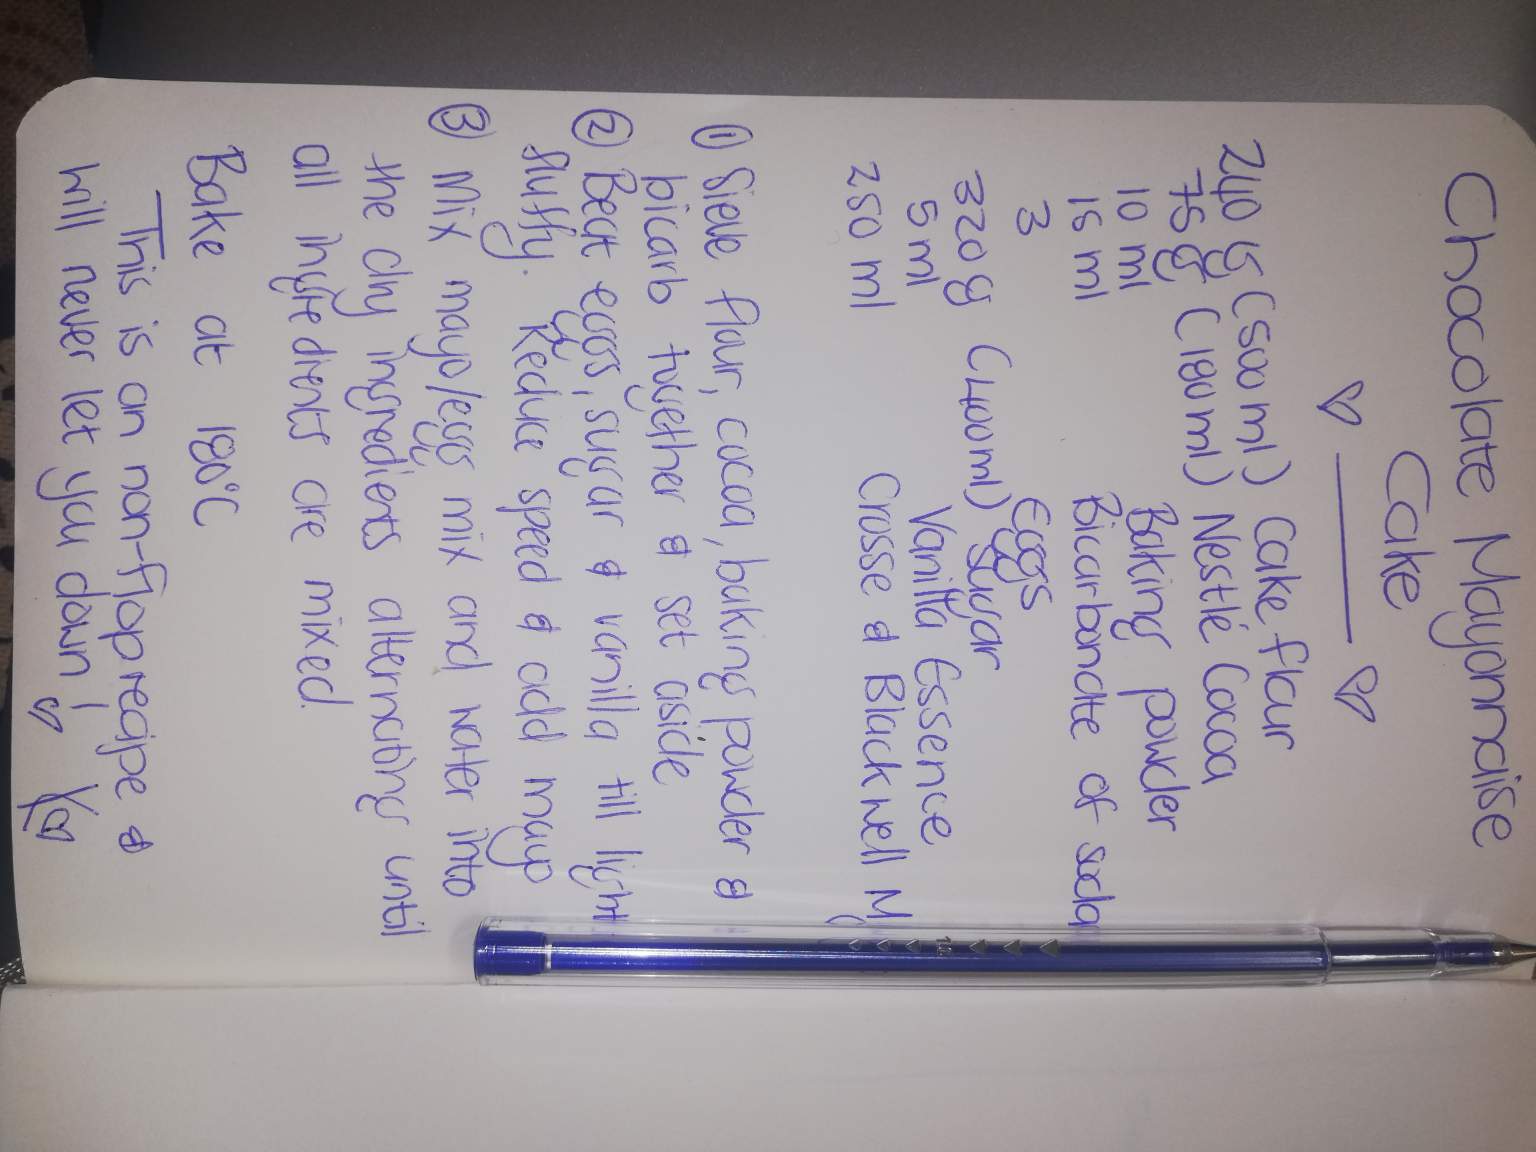 Chocolate Mayonnaise
Cake
240 g (500 ml) Cake flour
75g (180 ml) Nestlé Cocoa
10 ml Baking powder
15 ml Bicarbonate of soda
3 Eggs
320g (400ml) sugar
5 ml Vanilla Essence
250 ml Crosse & Blackwell M
① Sieve flour, cocoa, baking powder &
bicarb together & set aside
② Beat eggs, sugar & vanilla till light
fluffy. Reduce speed & add mayo
③ Mix mayo/eggs mix and water into
the dry ingredients alternating until
all ingredients are mixed.
Bake at 180°C
This is an non-flop recipe &
will never let you down!